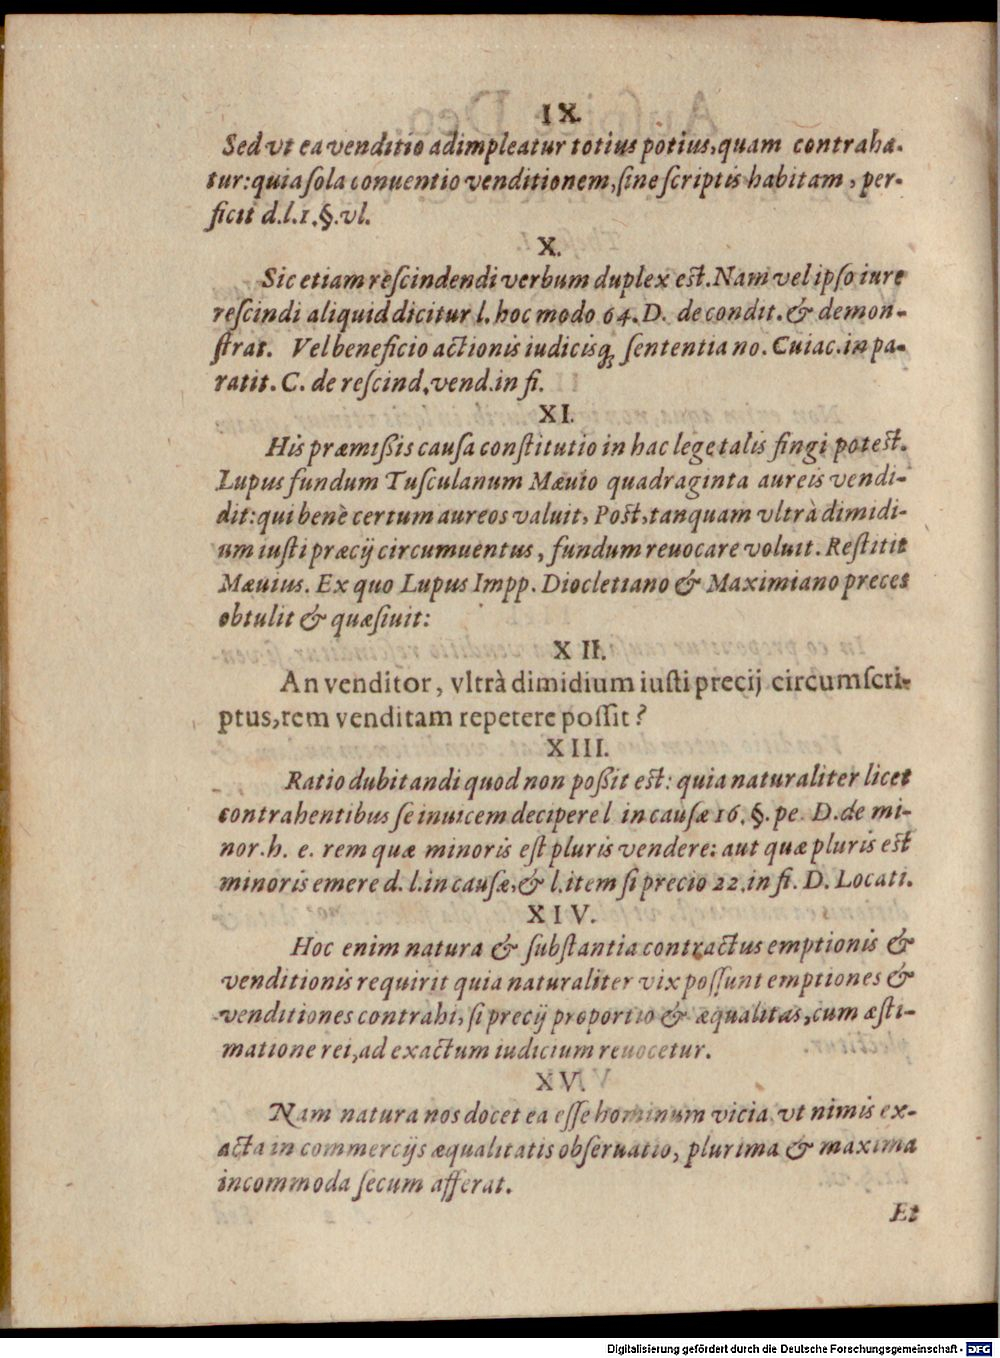 IX.
Sed vt ea venditio adimpleatur totius potius, quam contraha-
tur: quia sola conuentio venditionem, sine scriptis habitam, per-
ficit d.l.1.§.vl.
X.
Sic etiam rescindendi verbum duplex est. Nam vel ipso iure
rescindi aliquid dicitur l. hoc modo 64. D. de condit. & demon-
strat. Vel beneficio actionis iudicisq; sententia no. Cuiac. in pa-
ratit. C. de rescind. vend. in fi.
XI.
His præmißis causa constitutio in hac lege talis fingi potest.
Lupus fundum Tusculanum Mæuio quadraginta aureis vendi-
dit: qui benè certum aureos valuit, Post, tanquam vltrà dimidi-
um iusti præcij circumuentus, fundum reuocare voluit. Restitit
Mæuius. Ex quo Lupus Impp. Diocletiano & Maximiano preces
obtulit & quæsiuit:
XII.
An venditor, vltrà dimidium iusti precij circumscri-
ptus, rem venditam repetere possit?
XIII.
Ratio dubitandi quod non poßit est: quia naturaliter licet
contrahentibus se inuicem decipere l. in causæ 16. §. pe. D. de mi-
nor. h. e. rem quæ minoris est pluris vendere: aut quæ pluris est
minoris emere d. l. in causæ, & l. item si precio 22. in fi. D. Locati.
XIV.
Hoc enim natura & substantia contractus emptionis &
venditionis requirit quia naturaliter vix possunt emptiones &
venditiones contrahi, si precij proportio & æqualitas, cum æsti-
matione rei, ad exactum iudicium reuocetur.
XV.
Nam natura nos docet ea esse hominum vicia, vt nimis ex-
acta in commercijs æqualitatis obseruatio, plurima & maxima
incommoda secum afferat.
Et
Digitalisierung gefördert durch die Deutsche Forschungsgemeinschaft - DFG